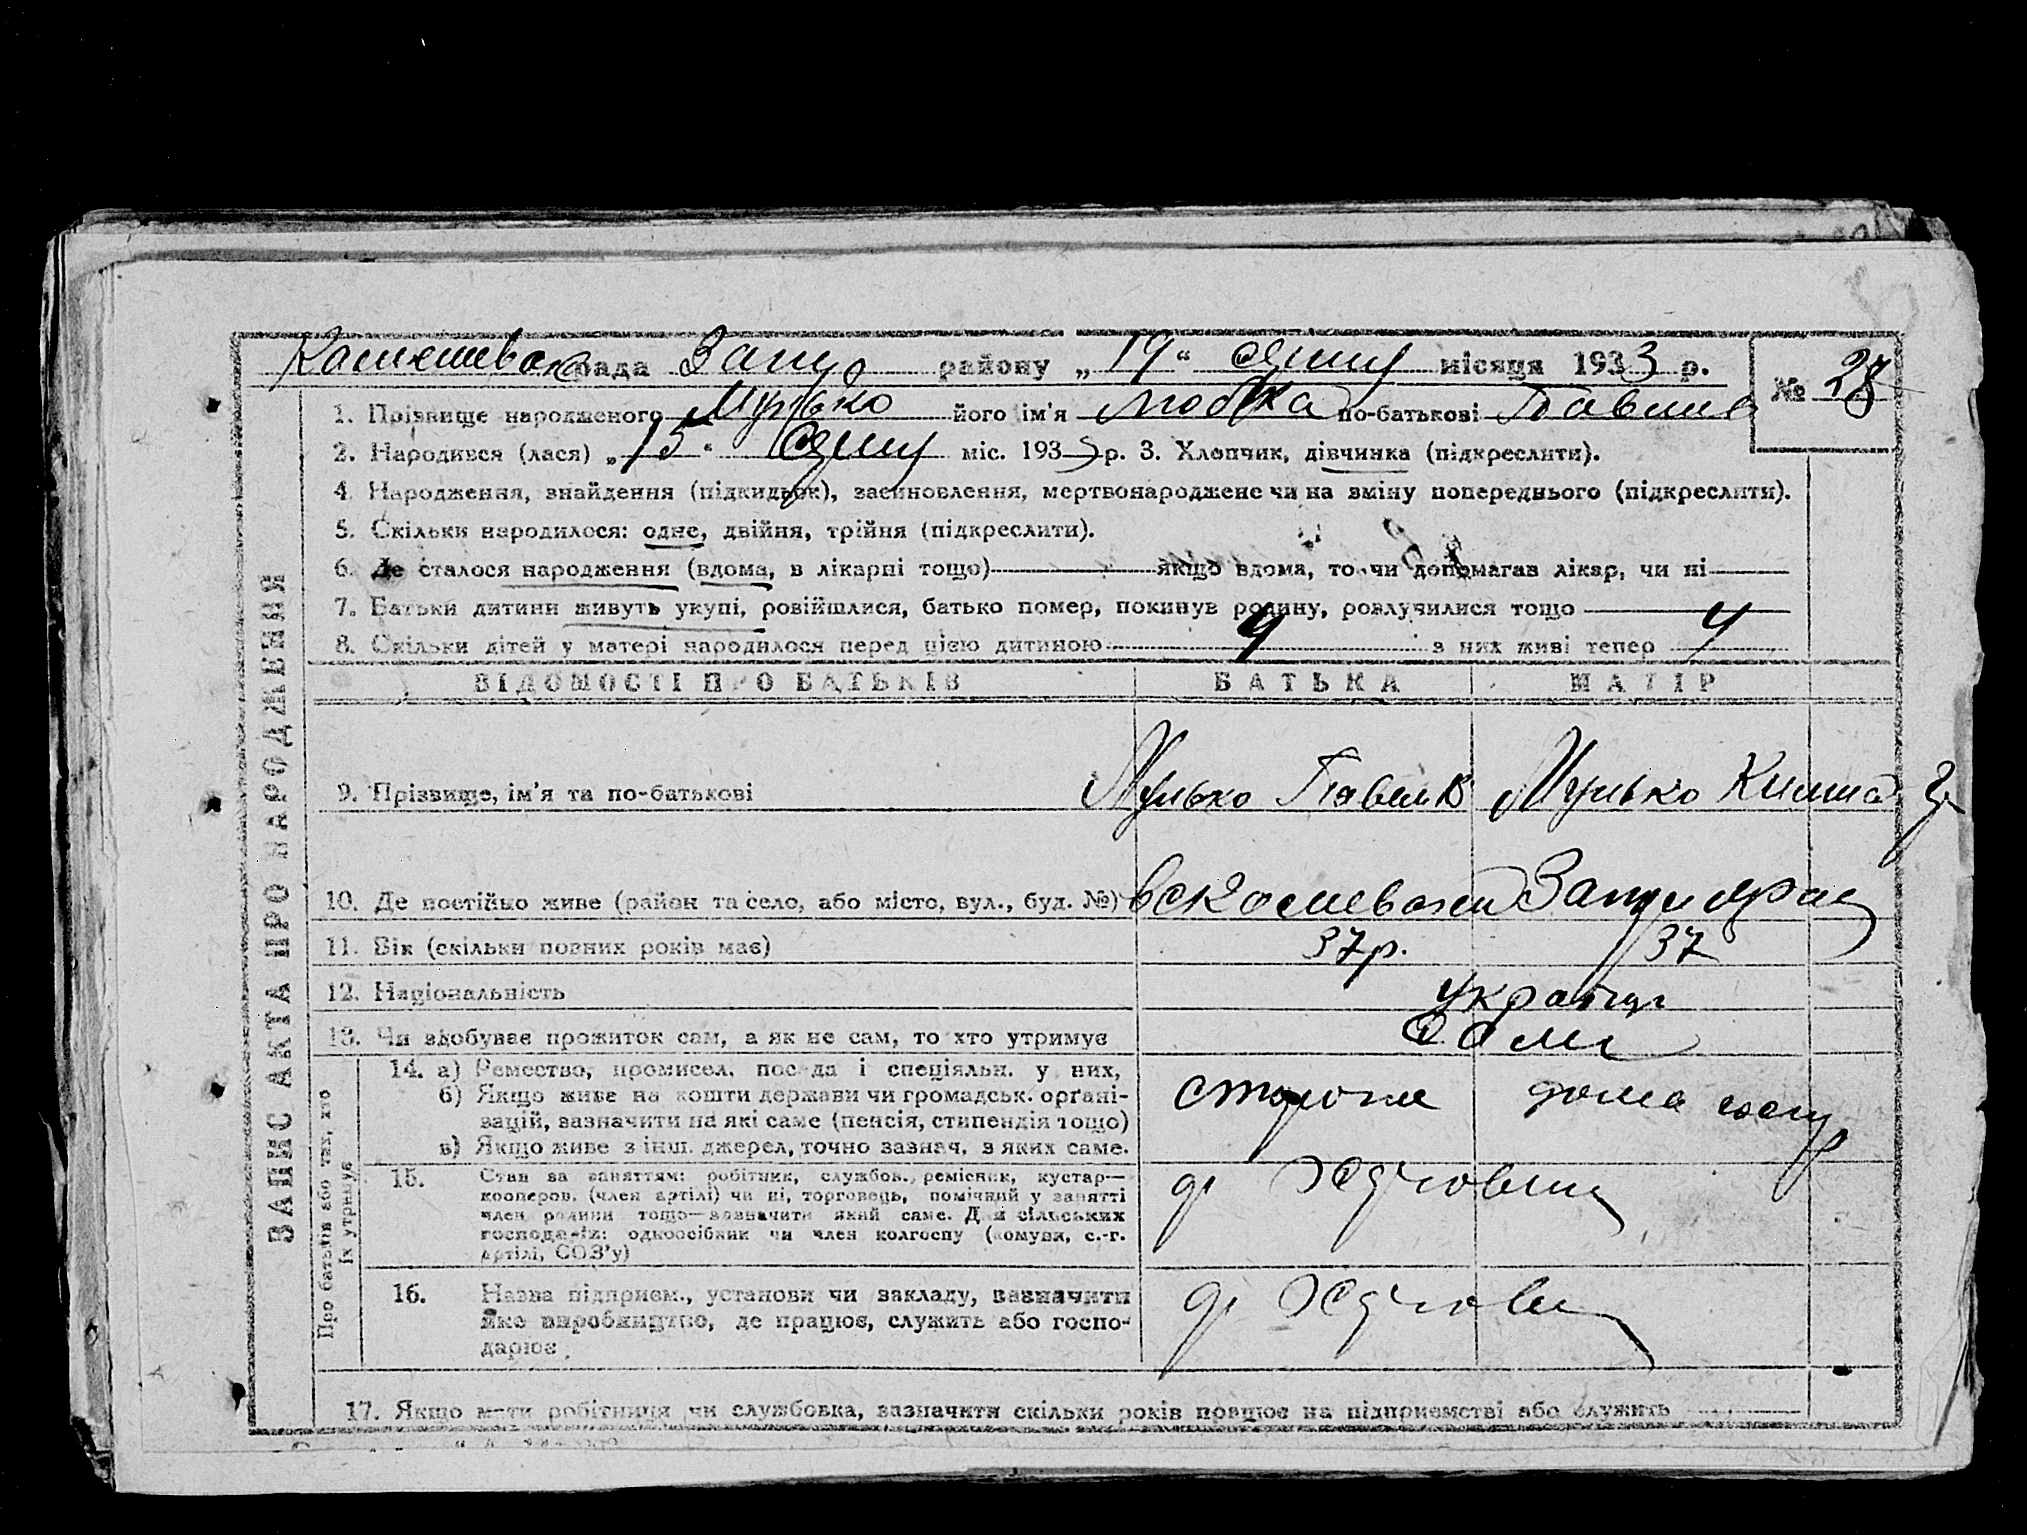 рада району „19“ місяця 1933 р.
№ 28
1. Прізвище народженого Мулько його ім'я Любка по-батькові Павлив
2. Народився (лася) „15“ міс. 1933 р. 3. Хлопчик, дівчинка (підкреслити).
4. Народження, знайдення (підкидьок), засиновлення, мертвонароджене чи на зміну попереднього (підкреслити).
5. Скільки народилося: одне, двійня, трійня (підкреслити).
6. Де сталося народження (вдома, в лікарні тощо) якщо вдома, то чи допомагав лікар, чи ні
7. Батьки дитини живуть укупі, розійшлися, батько помер, покинув родину, розлучилися тощо
8. Скільки дітей у матері народилося перед цією дитиною 4 з них живі тепер 4
ВІДОМОСТІ ПРО БАТЬКІВ БАТЬКА МАТІР
9. Прізвище, ім'я та по-батькові Мулько Павло Мулько
10. Де постійно живе (район та село, або місто, вул., буд. №)
11. Вік (скільки повних років має) 37р. 37
12. Національність
13. Чи здобуває прожиток сам, а як не сам, то хто утримує сами
14. а) Ремество, промисел, посада і спеціяльн. у них,
б) Якщо живе на кошти держави чи громадськ. орґані-
зацій, вазначити на які саме (пенсія, стипендія тощо)
в) Якщо живе з інш. джерел, точно зазнач. з яких саме.
сторож дома
15. Стан за заняттям: робітник, службов., ремісник, кустар—
кооперов. (член артілі) чи ні, торговець, помічний у занятті
член родини тощо—зазначити який саме. Для сільських
господарів: одноосібник чи член колгоспу (комуни, с.-г.
артілі, СОЗ'у)
16. Назва підприєм., установи чи закладу, вазначити
яке виробництво, де працює, служить або госпо-
дарює
17. Якщо мати робітниця чи службовка, вазначити скільки років працює на підприємстві або служить
ЗАПИС АКТА ПРО НАРОДЖЕННЯ
Про батьків або тих, хто
їх утримує